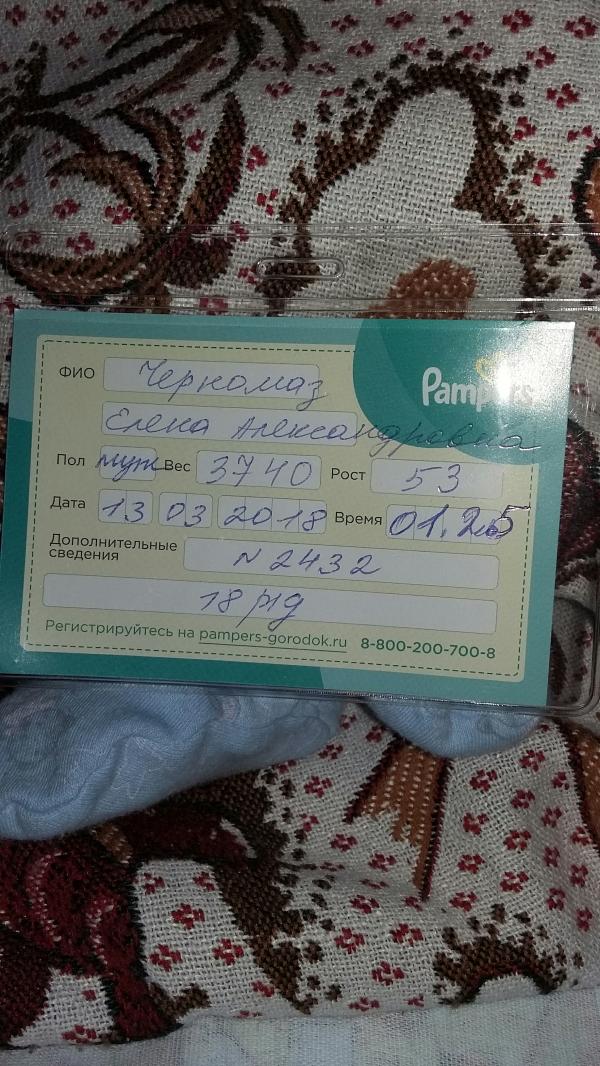 ФИО Черномаз
Pampers
Елена Александровна
Пол муж Вес 3740 Рост 53
Дата 13 03 2018 Время 01.25
Дополнительные сведения N 2432
18 р/д
Регистрируйтесь на pampers-gorodok.ru 8-800-200-700-8